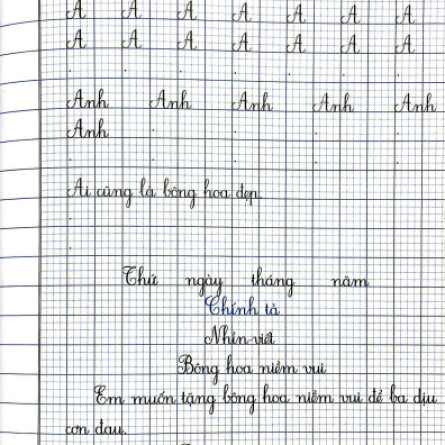 A A A A A A A
A A A A A A A
Anh Anh Anh Anh Anh
Anh
Ai cũng là bông hoa đẹp.
Thứ ngày tháng năm
Chính tả
Nhìn-viết
Bông hoa niềm vui
Em muốn tặng bông hoa niềm vui để ba dịu
cơn đau.